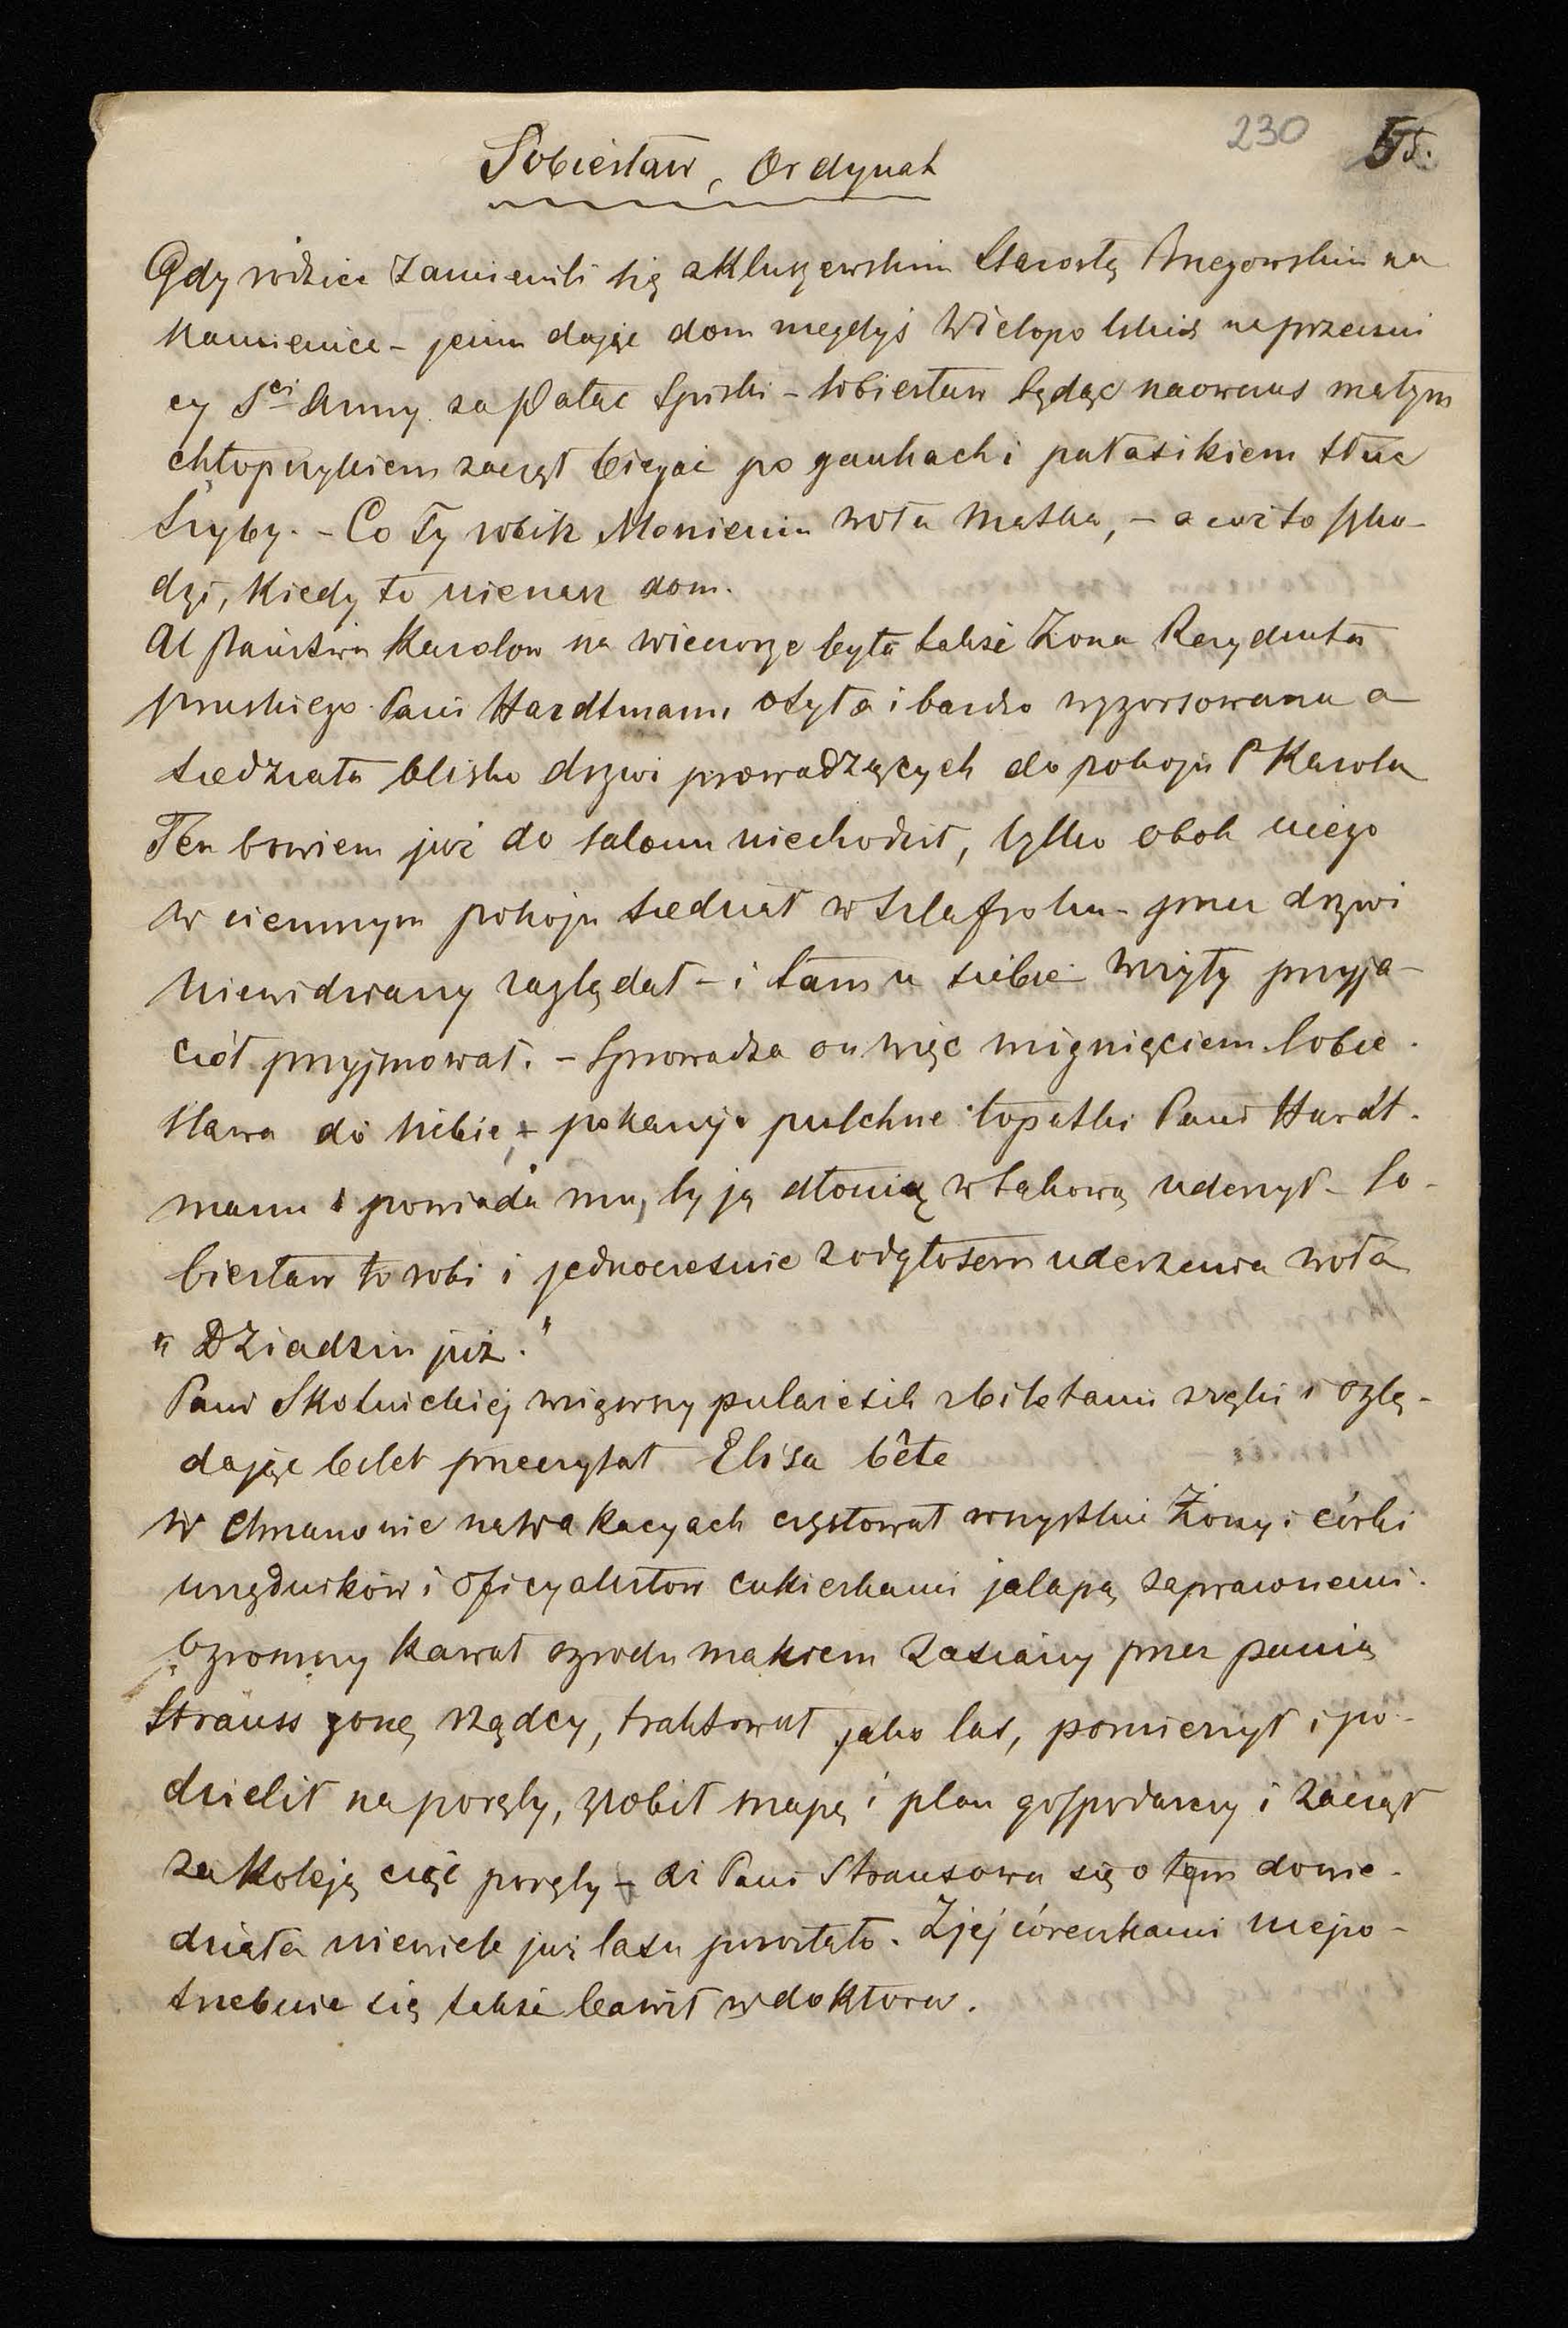 230 55.
Sobiesław, Ordynat
Gdy rodzice zamienili się z Kluszewskim Starostą Brzegowskim na
Kamienice – jemu dając dom niegdyś Wielopolskich naprzeciw
cy Sei Anny za Pałac Spiski – Sobiesław będąc naowczas małym
chłopczykiem zaczął biegać po gankach i pałasikiem tłuc
szyby. – Co Ty robisz Moniemu woła Matka, – a coż to szko-
dzi, Kiedy to nienasz dom.
U Państwa Karolow na wieczorze była także Żona Rezydenta
pruskiego Pani Hardtmann otyła i bardzo wygorsowana a
siedziała blisko drzwi prowadzących do pokoju P Karola
Ten bowiem już do salonu niechodził, tylko obok niego
w ciemnym pokoju siedział w szlafroku – przez drzwi
niewidziany zaglądał – i tam u siebie wizyty przyja-
ciół przyjmował. – Sprowadza on więc mignięciem Sobie-
sława do siebie, pokazuje pulchne łopatki Pani Hardt-
mann i powiada mu, by ją dłonią w takową uderzył – So-
biesław to robi i jednocześnie z odgłosem uderzenia woła
„Dziadziu już."
Pani Skotnickiej wziąwszy pularesik z biletami z ręki i oglą-
dając bilet przeczytał Elisa bête
w Chmanowie na wakacyach częstował wszystkie Żony i córki
urzędników i oficyalistow cukierkami jalapą zaprawionemi.
Ogromny kawał ogrodu makiem zasiany przez panią
Strauss żonę rządcy, traktował jako las, pomierzył i po-
dzielił na poręby, zrobił mapę i plan gospodarczy i zaczął
za koleją ciąć poręby – aż Pani Strausowa się o tem dowie-
działa niewiele już lasu pozostało. Z jej córeczkami niepo-
trzebnie się także bawił w doktora.